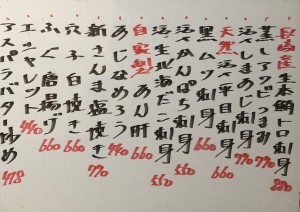 臼崎産生本鮪トロ刺身 880
蒸しアワビつまみ 770
活〆しめあじ刺身 770
天然活〆平目刺身 660
黒ムツ刺身 660
活〆かんぱち刺身 550
活生北海だこ刺身 550
自家製あん肝 660
あじなめろう 440
新さんま塩焼き 660
穴子白焼き 660
ふぐ唐揚げ 660
エシャレット 440
アスパラバター炒め 478